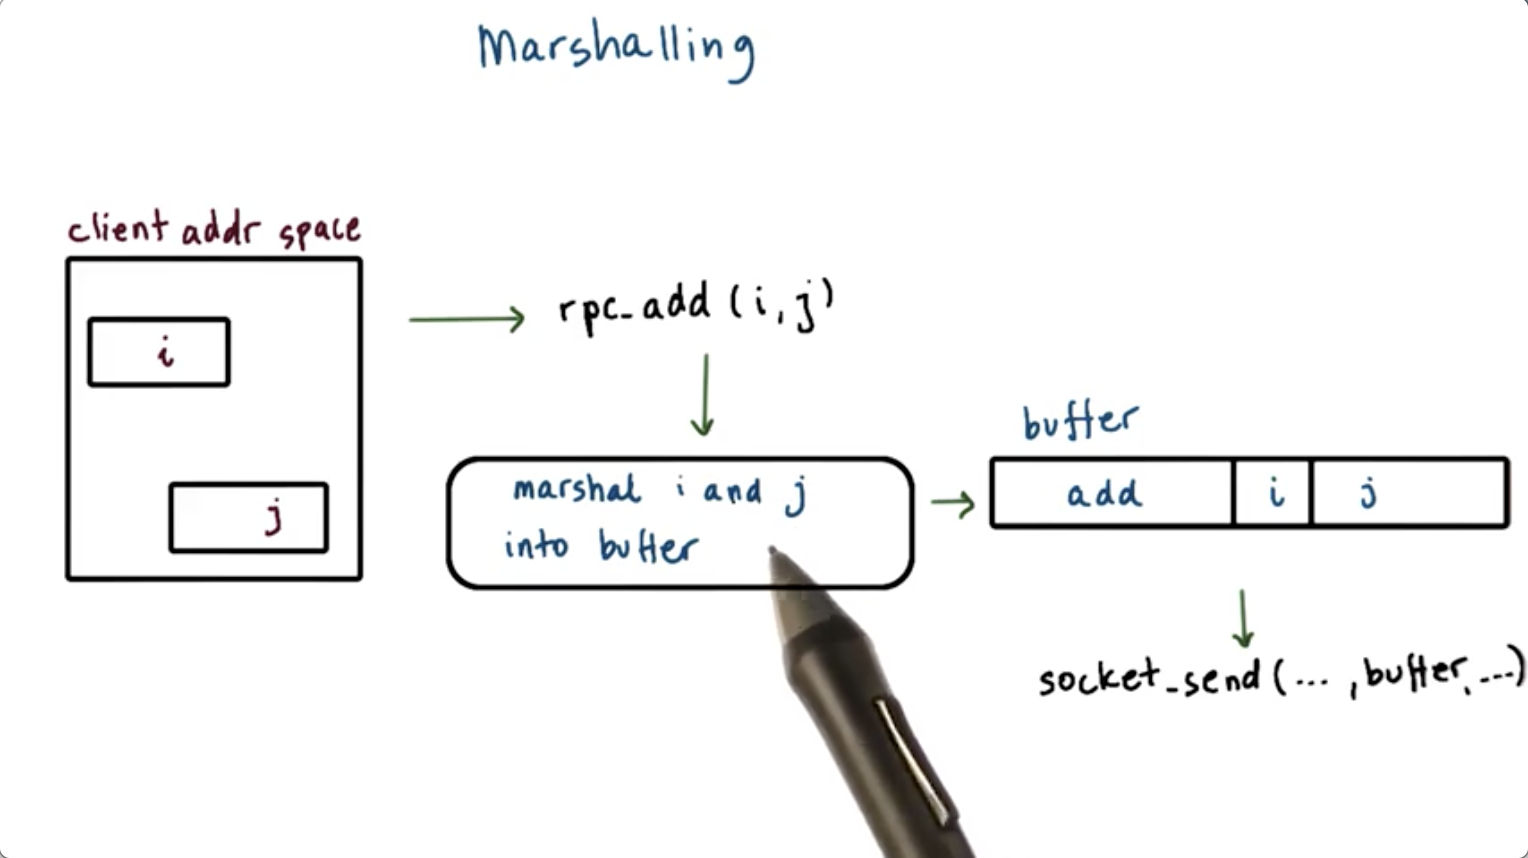 Marshalling
client addr space
i
j
rpc_add (i, j)
marshal i and j
into buffer
buffer
add i j
socket_send (... , buffer, ...)